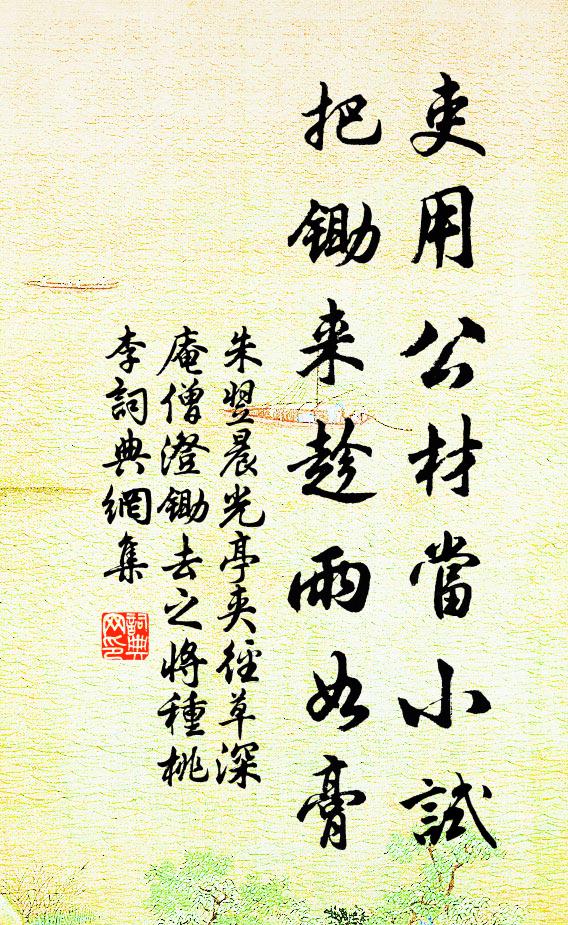 吏用公材當小試
把鋤来趁雨如膏
朱翌晨光亭夾徑草深
庵僧澄鋤去之將種桃
李詞典網集
詞典
网印